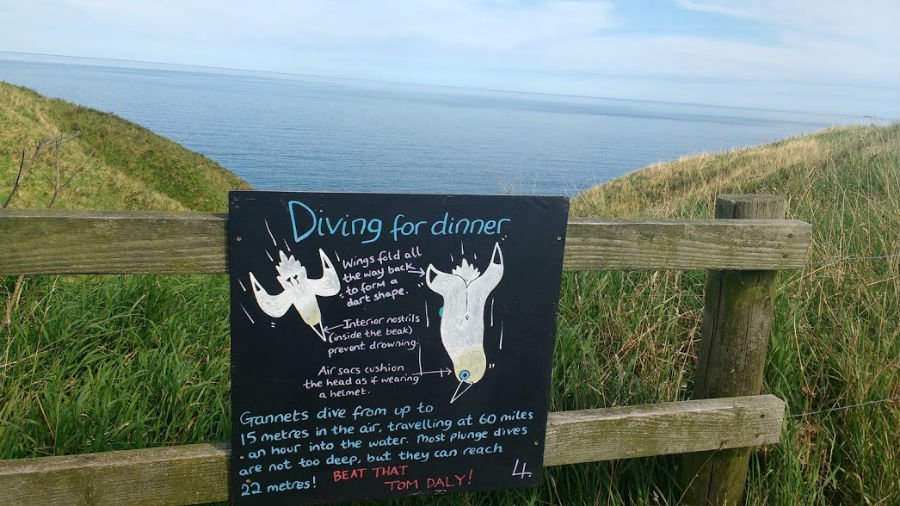 Diving for dinner
Wings fold all
the way back
to form a
dart shape.
Interior nostrils
(inside the beak)
prevent drowning.
Air sacs cushion
the head as if wearing
a helmet.
Gannets dive from up to
15 metres in the air, travelling at 60 miles
an hour into the water. Most plunge dives
are not too deep, but they can reach
22 metres! BEAT THAT
TOM DALY!
4